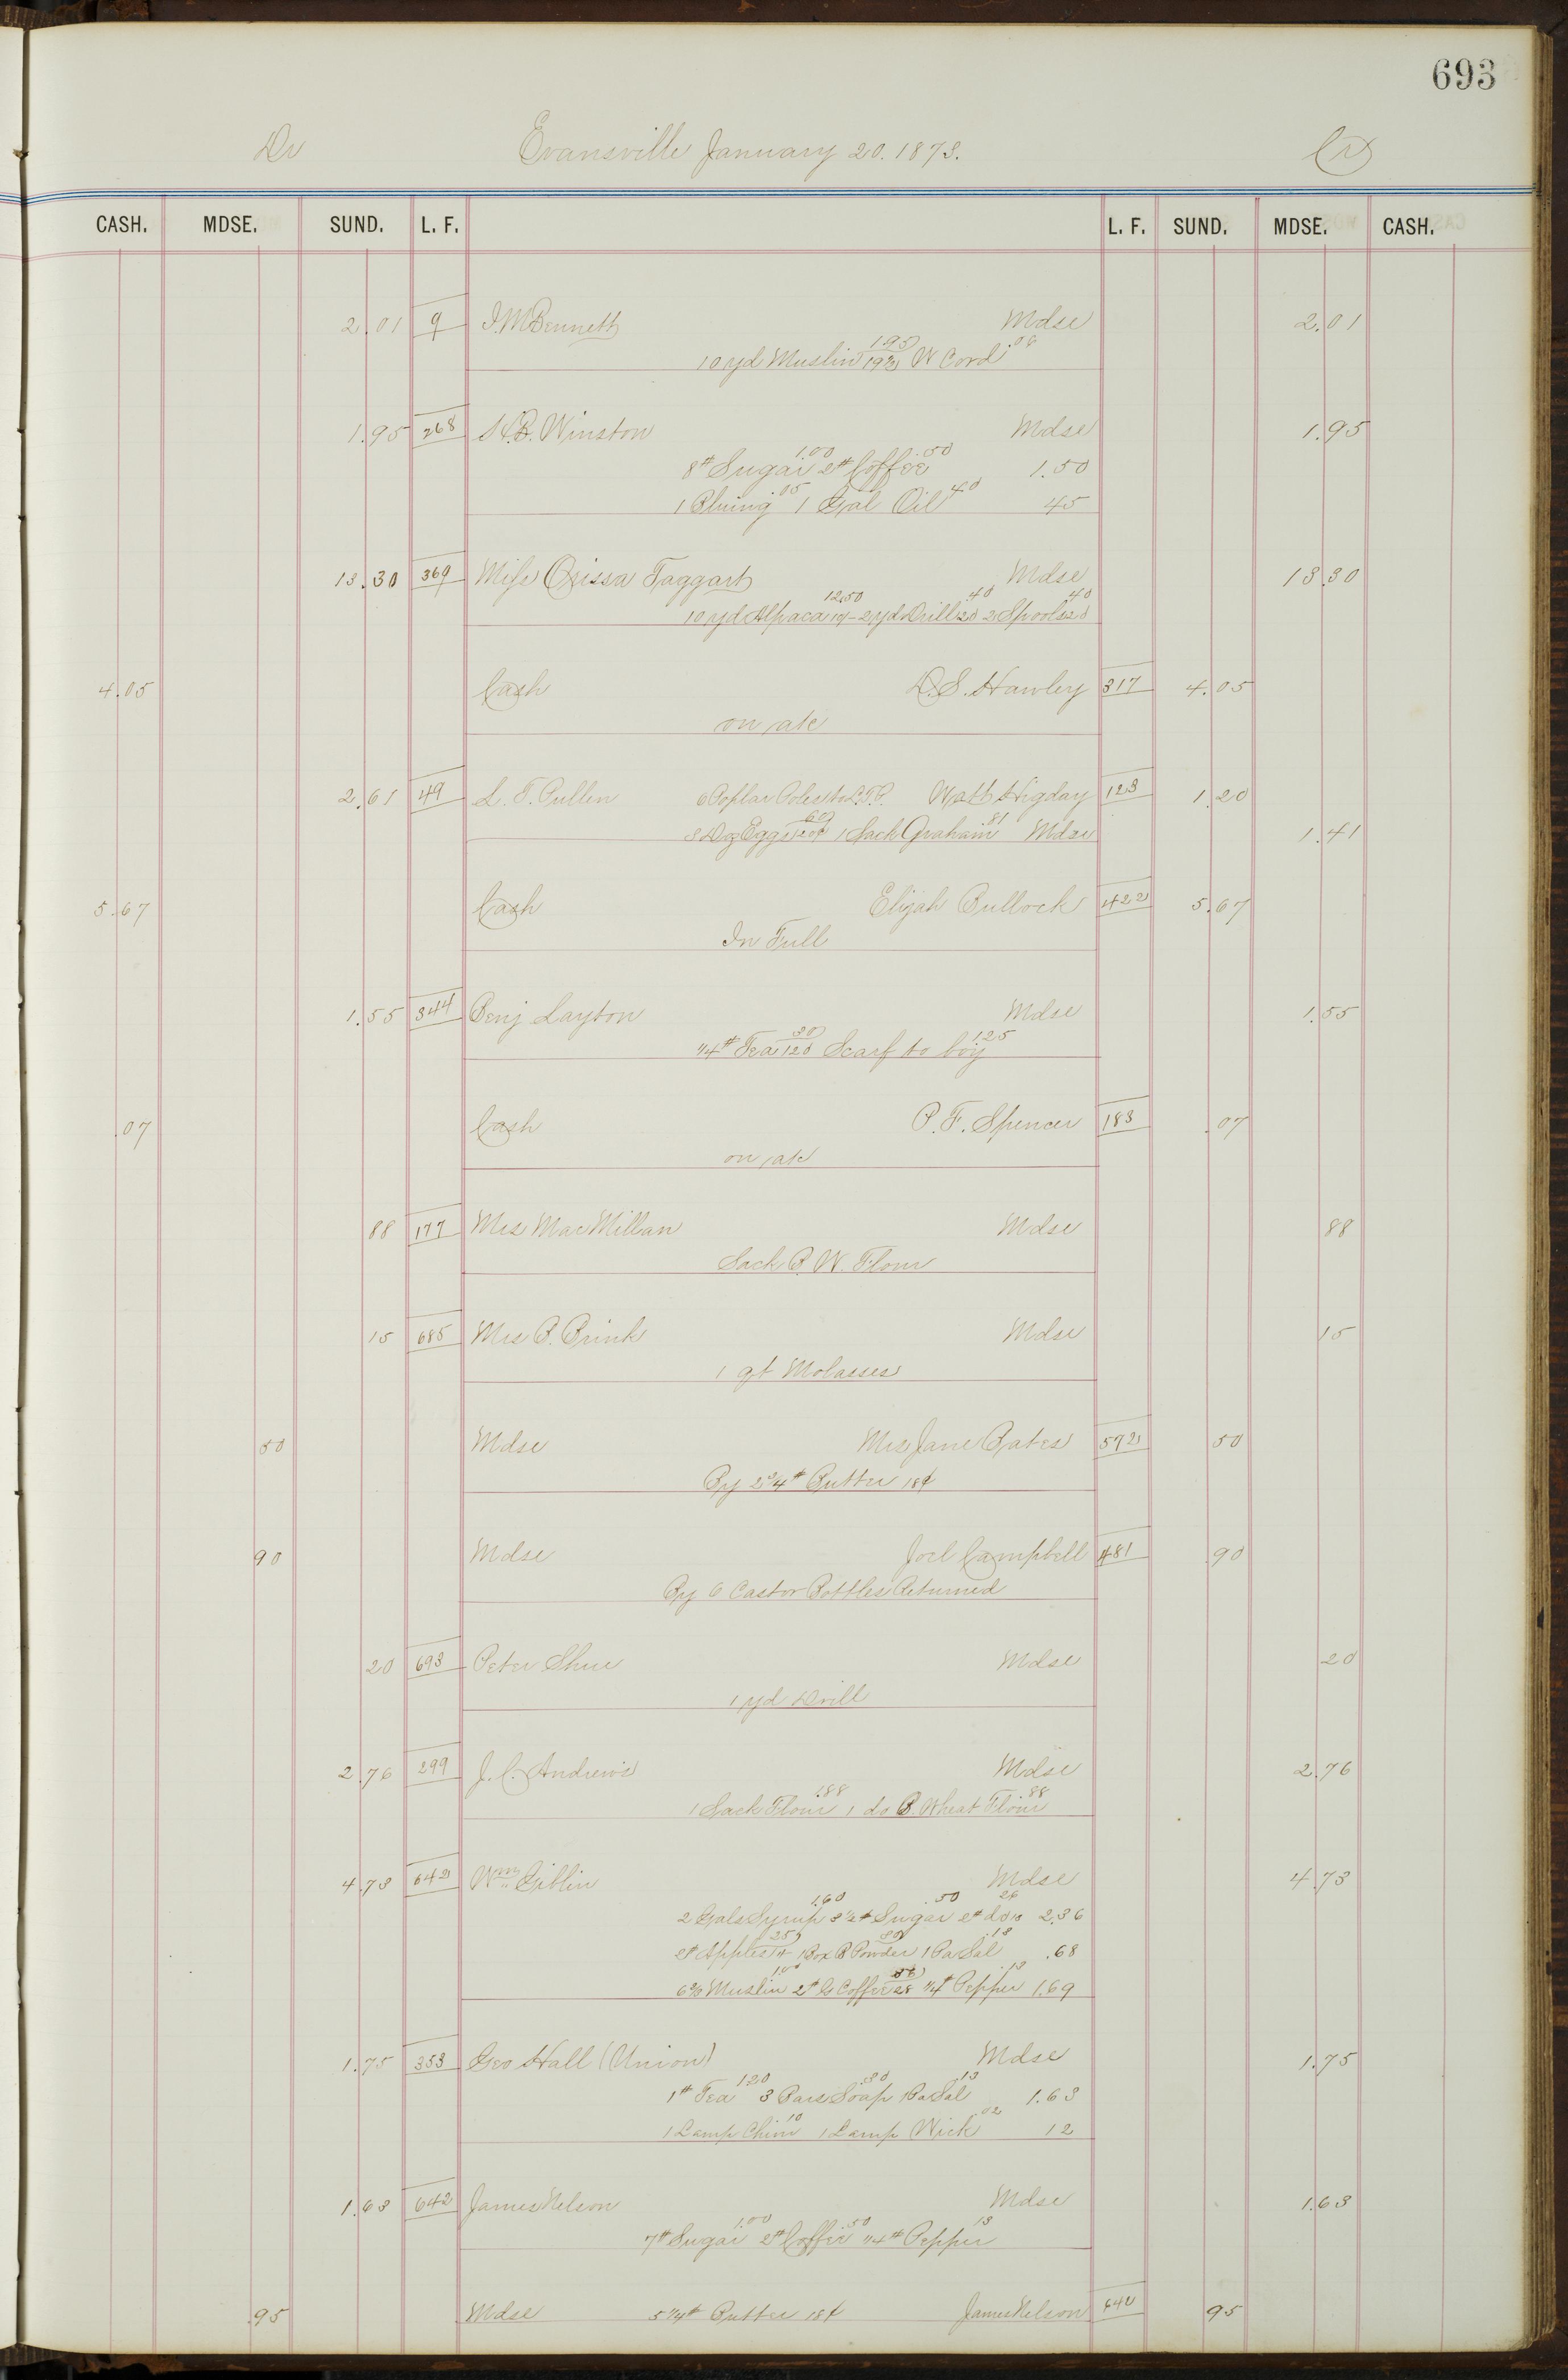 693
Dr Evansville January 20. 1873. Cr
CASH. MDSE. SUND. L. F. L. F. SUND. MDSE. CASH.
2.01 9 I. M. Bennett Mdse 2.01
10 yd Muslin 1.95 19½ W Cord .06
1.95 268 H.B. Winston Mdse 1.95
8# Sugar 1.00 2# Coffee .50 1.50
1 Bluing .05 1 Gal Oil 40 45
13.30 369 Miss Orissa Taggart Mdse 13.30
10 yd Alpaca 12.50 10/- 2 yd Drill 40 20 2 Spools 40 20
4.05 Cash D. S. Hawley 317 4.05
on ac
2.61 49 L. T. Pullen 6 Poplar Poles to L.T.P. Watt Higday 123 1.20
3 Doz Eggs 60 20¢ 1 Sack Graham 81 Mdse 1.41
5.67 Cash Elijah Bullock 422 5.67
In Full
1.55 344 Benj Layton Mdse 1.55
¼# Tea 30 120 Scarf to boy 1.25
.07 Cash P. F. Spencer 183 .07
on ac
88 177 Mrs Mac Millan Mdse 88
Sack B. W. Flour
15 685 Mrs B. Brink Mdse 15
1 qt Molasses
50 Mdse Mrs Jane Bates 572 50
By 2¾# Butter 18¢
90 Mdse Joel Campbell 481 90
By 6 Castor Bottles Returned
20 693 Peter Shue Mdse 20
1 yd Drill
2.76 299 J. C. Andrews Mdse 2.76
1 Sack Flour 1.88 1 do B. Wheat Flour .88
4.73 642 Wm Giblin Mdse 4.73
2 Gals Syrup 1.60 3½# Sugar .50 2# do 13 26 2.36
2# Apples 25 1 Box B Powder 30 1 Pa Sal .13 .68
6⅔ Muslin 1.00 2# G Coffee 56 28 ¼# Pepper .13 1.69
1.75 353 Geo Hall (Union) Mdse 1.75
1# Tea 1.20 3 Bars Soap .30 1 Pa Sal 13 1.63
1 Lamp Chim 10 1 Lamp Wick 02 12
1.63 642 James Nelson Mdse 1.63
7# Sugar 1.00 2# Coffee .50 ¼# Pepper 13
.95 Mdse 5¼# Butter 18¢ James Nelson 642 95